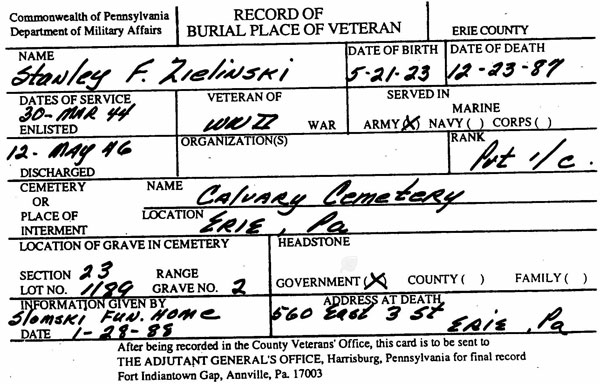 Commonwealth of Pennsylvania
Department of Military Affairs
RECORD OF
BURIAL PLACE OF VETERAN
ERIE COUNTY
NAME
Stanley F. Zielinski
DATE OF BIRTH
5-21-23
DATE OF DEATH
12-23-87
DATES OF SERVICE
30-MAR 44
ENLISTED
12-MAY 46
DISCHARGED
VETERAN OF
WW II WAR
SERVED IN
MARINE
ARMY (X) NAVY ( ) CORPS ( )
ORGANIZATION(S)
RANK
Pvt 1/c.
CEMETERY
OR
PLACE OF
INTERMENT
NAME Calvary Cemetery
LOCATION ERIE, Pa
LOCATION OF GRAVE IN CEMETERY
SECTION 23 RANGE
LOT NO. 1189 GRAVE NO. 2
HEADSTONE
GOVERNMENT (X) COUNTY ( ) FAMILY ( )
INFORMATION GIVEN BY
Slomski Fun. Home
DATE 1-28-88
ADDRESS AT DEATH
560 East 3 St
ERIE, Pa
After being recorded in the County Veterans' Office, this card is to be sent to
THE ADJUTANT GENERAL'S OFFICE, Harrisburg, Pennsylvania for final record
Fort Indiantown Gap, Annville, Pa. 17003